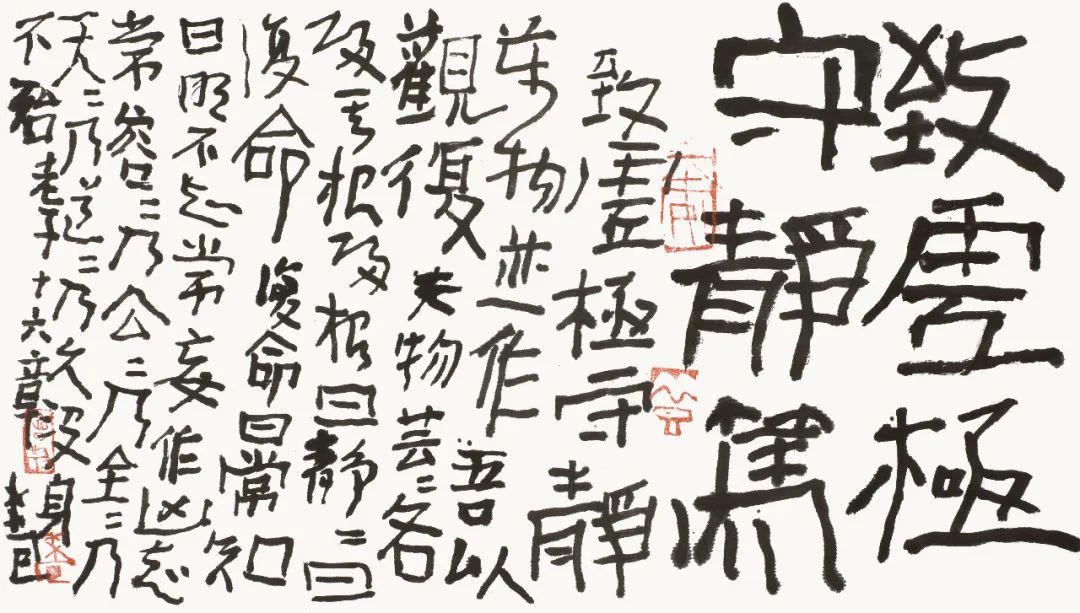 致虛極
守靜篤
致虛極守靜
萬物並作吾以
觀復夫物芸〻各
歸其根歸根曰靜〻曰
復命復命曰常知
曰明不知常妄作凶知
常容〻乃公〻乃全〻乃
天〻乃道〻乃久歿身
不殆老子十六章